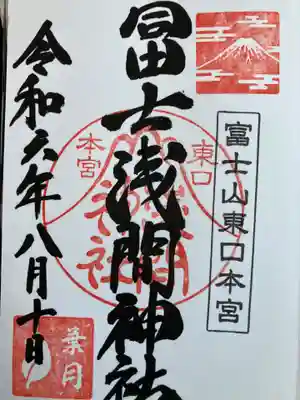 富士山東口本宮
冨士浅間神社
東口
本宮
令和六年八月十日
葉月